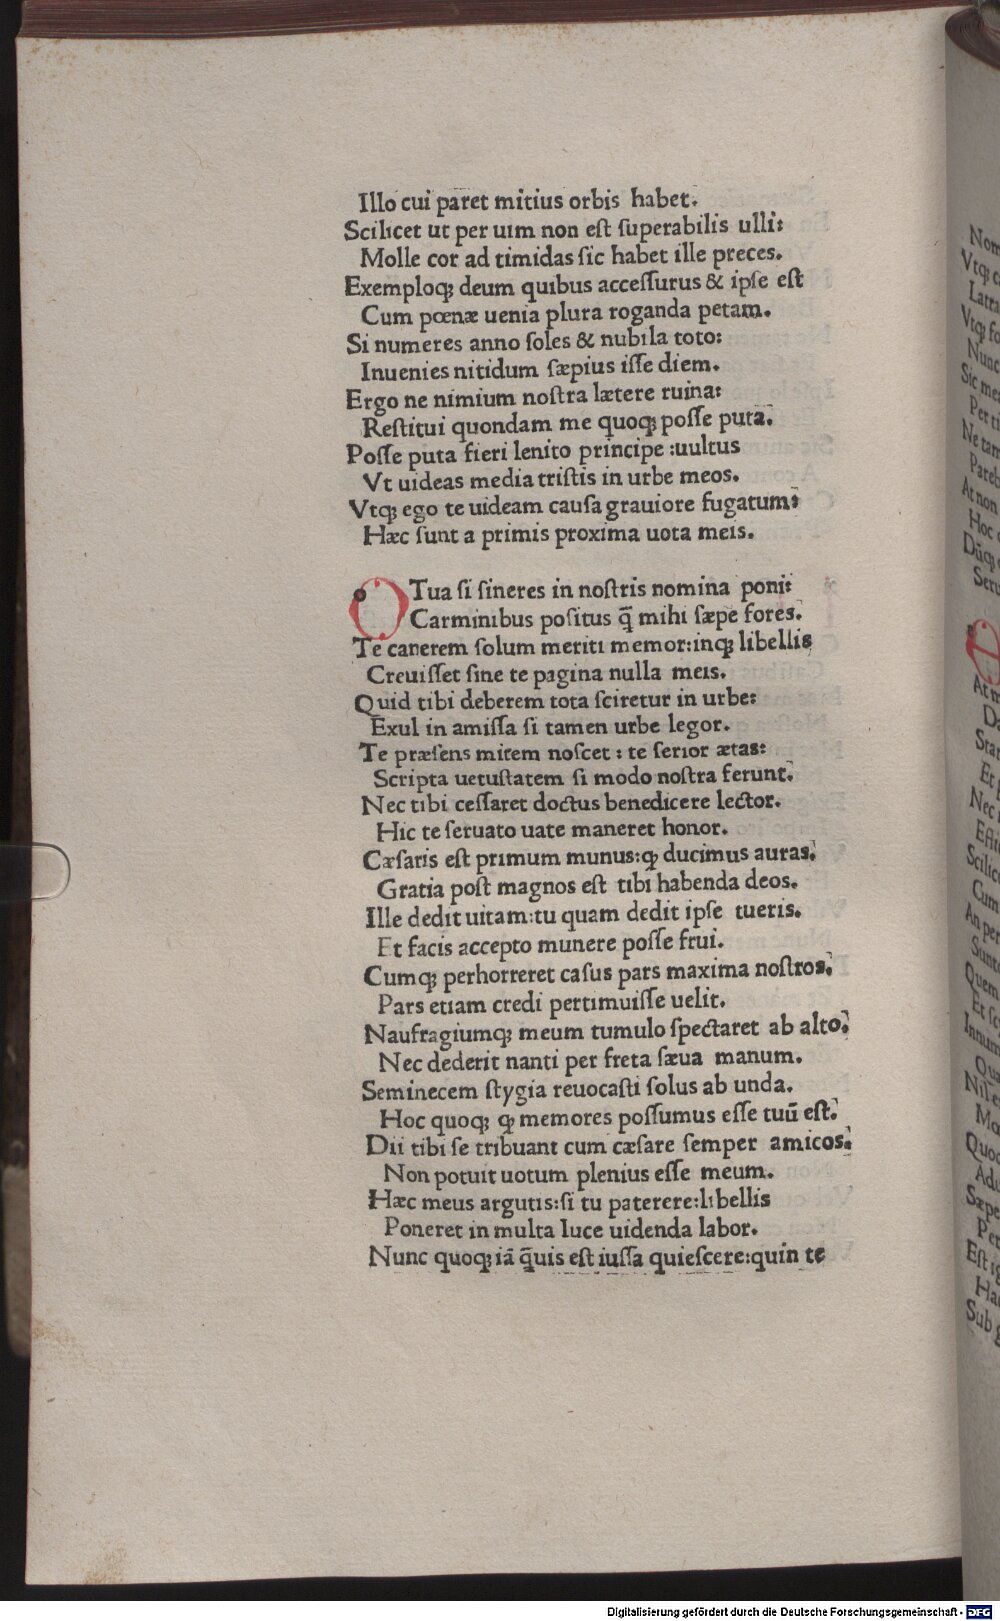 Illo cui paret mitius orbis habet.
Scilicet ut per uim non eſt ſuperabilis ulli:
Molle cor ad timidas ſic habet ille preces.
Exemploqꝫ deum quibus acceſſurus & ipſe eſt
Cum pœnæ uenia plura roganda petam.
Si numeres anno ſoles & nubila toto:
Inuenies nitidum ſæpius iſſe diem.
Ergo ne nimium noſtra lætere ruina:
Reſtitui quondam me quoqꝫ poſſe puta.
Poſſe puta fieri lenito principe :uultus
Vt uideas media triſtis in urbe meos.
Vtqꝫ ego te uideam cauſa grauiore fugatum:
Hæc ſunt a primis proxima uota meis.
O Tua ſi ſineres in noſtris nomina poni:
Carminibus poſitus q̄ mihi ſæpe fores.
Te canerem ſolum meriti memor:inqꝫ libellis
Creuiſſet ſine te pagina nulla meis.
Quid tibi deberem tota ſciretur in urbe:
Exul in amiſſa ſi tamen urbe legor.
Te præſens mitem noſcet : te ſerior ætas:
Scripta uetuſtatem ſi modo noſtra ferunt.
Nec tibi ceſſaret doctus benedicere lector.
Hic te ſeruato uate maneret honor.
Cæſaris eſt primum munus:qꝫ ducimus auras.
Gratia poſt magnos eſt tibi habenda deos.
Ille dedit uitam:tu quam dedit ipſe tueris.
Et facis accepto munere poſſe frui.
Cumqꝫ perhorreret caſus pars maxima noſtros.
Pars etiam credi pertimuiſſe uelit.
Naufragiumqꝫ meum tumulo ſpectaret ab alto.
Nec dederit nanti per freta ſæua manum.
Seminecem ſtygia reuocaſti ſolus ab unda.
Hoc quoqꝫ qꝫ memores poſſumus eſſe tuū eſt.
Dii tibi ſe tribuant cum cæſare ſemper amicos.
Non potuit uotum plenius eſſe meum.
Hæc meus argutis:ſi tu paterere:libellis
Poneret in multa luce uidenda labor.
Nunc quoqꝫ iā q̄uis eſt iuſſa quieſcere:quin te
Digitalisierung gefördert durch die Deutsche Forschungsgemeinschaft - DFG